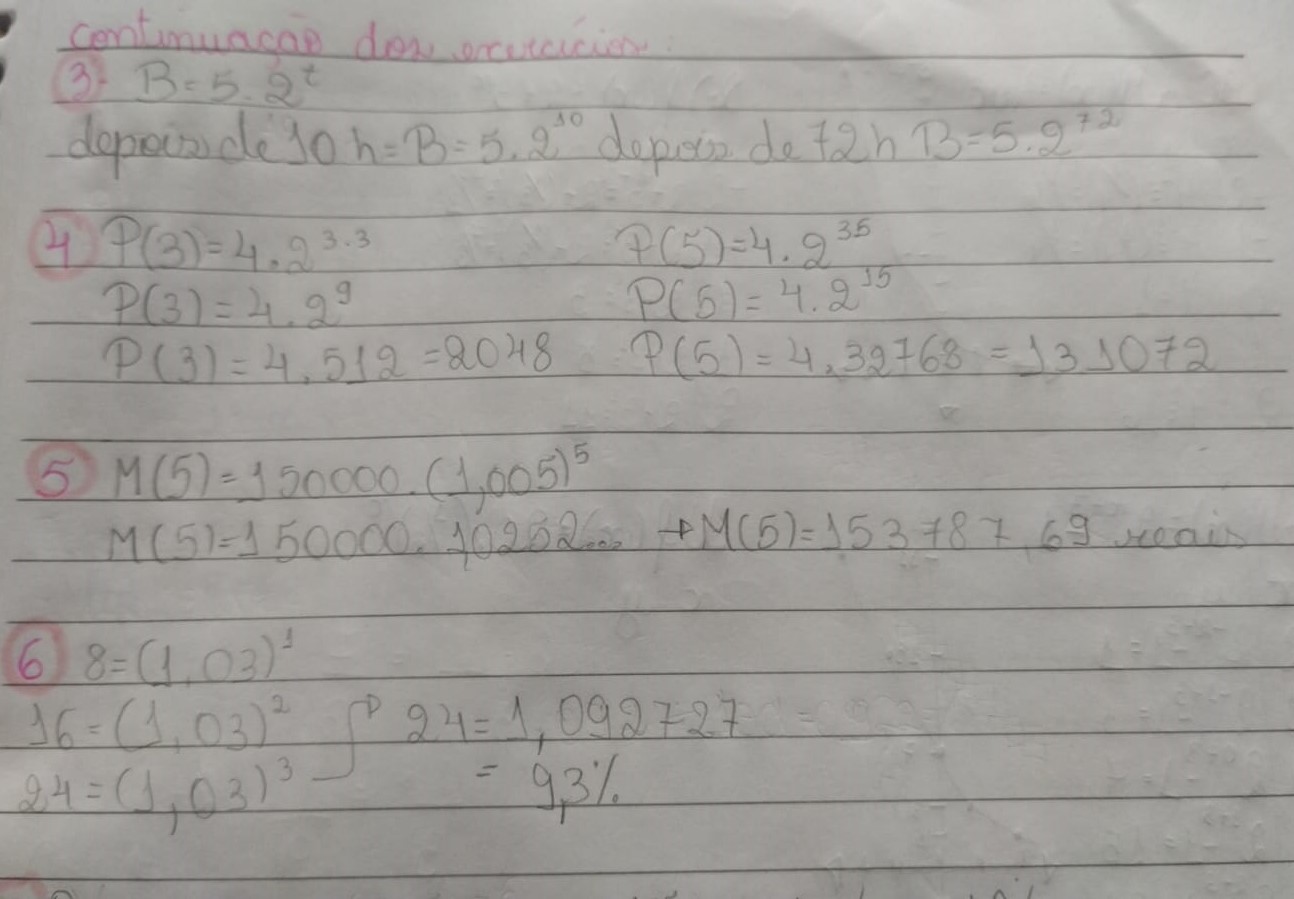 continuação dos exercícios:
3) B = 5 . 2^t
depois de 10 h = B = 5 . 2^10 depois de 72 h B = 5 . 2^72
4 P(3) = 4 . 2^3.3 P(5) = 4 . 2^35
P(3) = 4 . 2^9 P(5) = 4 . 2^15
P(3) = 4 . 512 = 2048 P(5) = 4 . 32768 = 131072
5 M(5) = 150000 . (1,005)^5
M(5) = 150000 . 1,0252... → M(5) = 153787,69 reais
6 8 = (1,03)^1
16 = (1,03)^2 → 24 = 1,092727
24 = (1,03)^3 = 9,3%